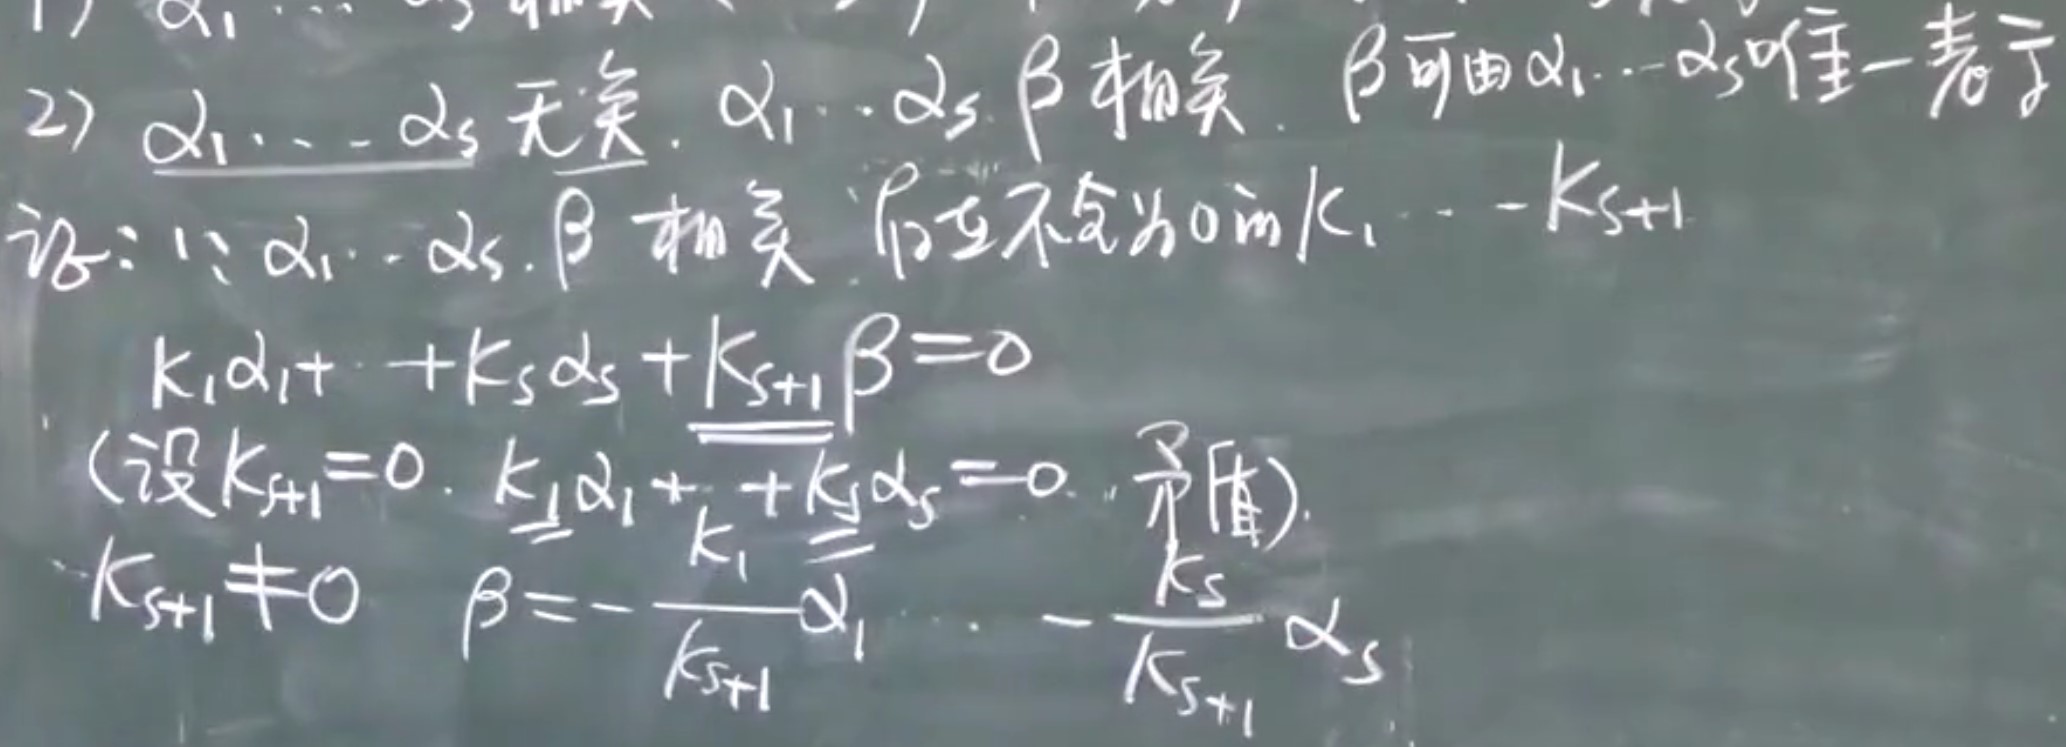 1) α₁ … αₛ 相关
2) α₁ … αₛ 无关. α₁ … αₛ. β 相关. β可由α₁ … αₛ唯一表示
证: 1) α₁ … αₛ. β 相关 存在不全为0的 K₁ … Kₛ₊₁
K₁α₁+ … +Kₛαₛ+Kₛ₊₁β=0
(设Kₛ₊₁=0. K₁α₁+ … +Kₛαₛ=0. 矛盾).
Kₛ₊₁≠0 β=-K₁/Kₛ₊₁ α₁ … -Kₛ/Kₛ₊₁ αₛ